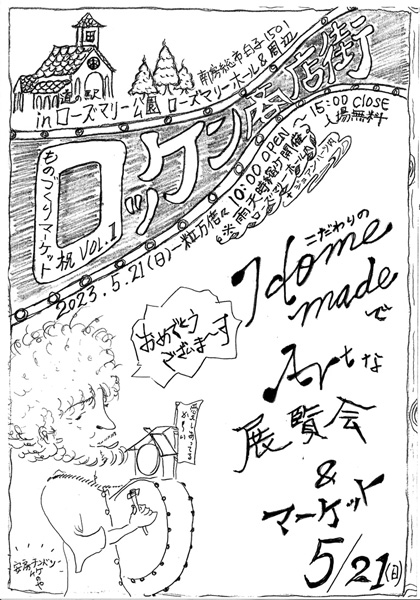 南房総市白子1501
道の駅
in ローズマリー公園 ローズマリーホール&周辺
ロッケン商店街
ものづくりマーケット
祝 VOL.1
2023.5.21(日)一粒万倍 10:00 OPEN ～ 15:00 CLOSE
入場無料
※雨天時縮小開催
ローズマリーホール
こだわりの
Home
made で
な
展覧会
&
マーケット
5/21(日)
おめでとう
ござりま～す